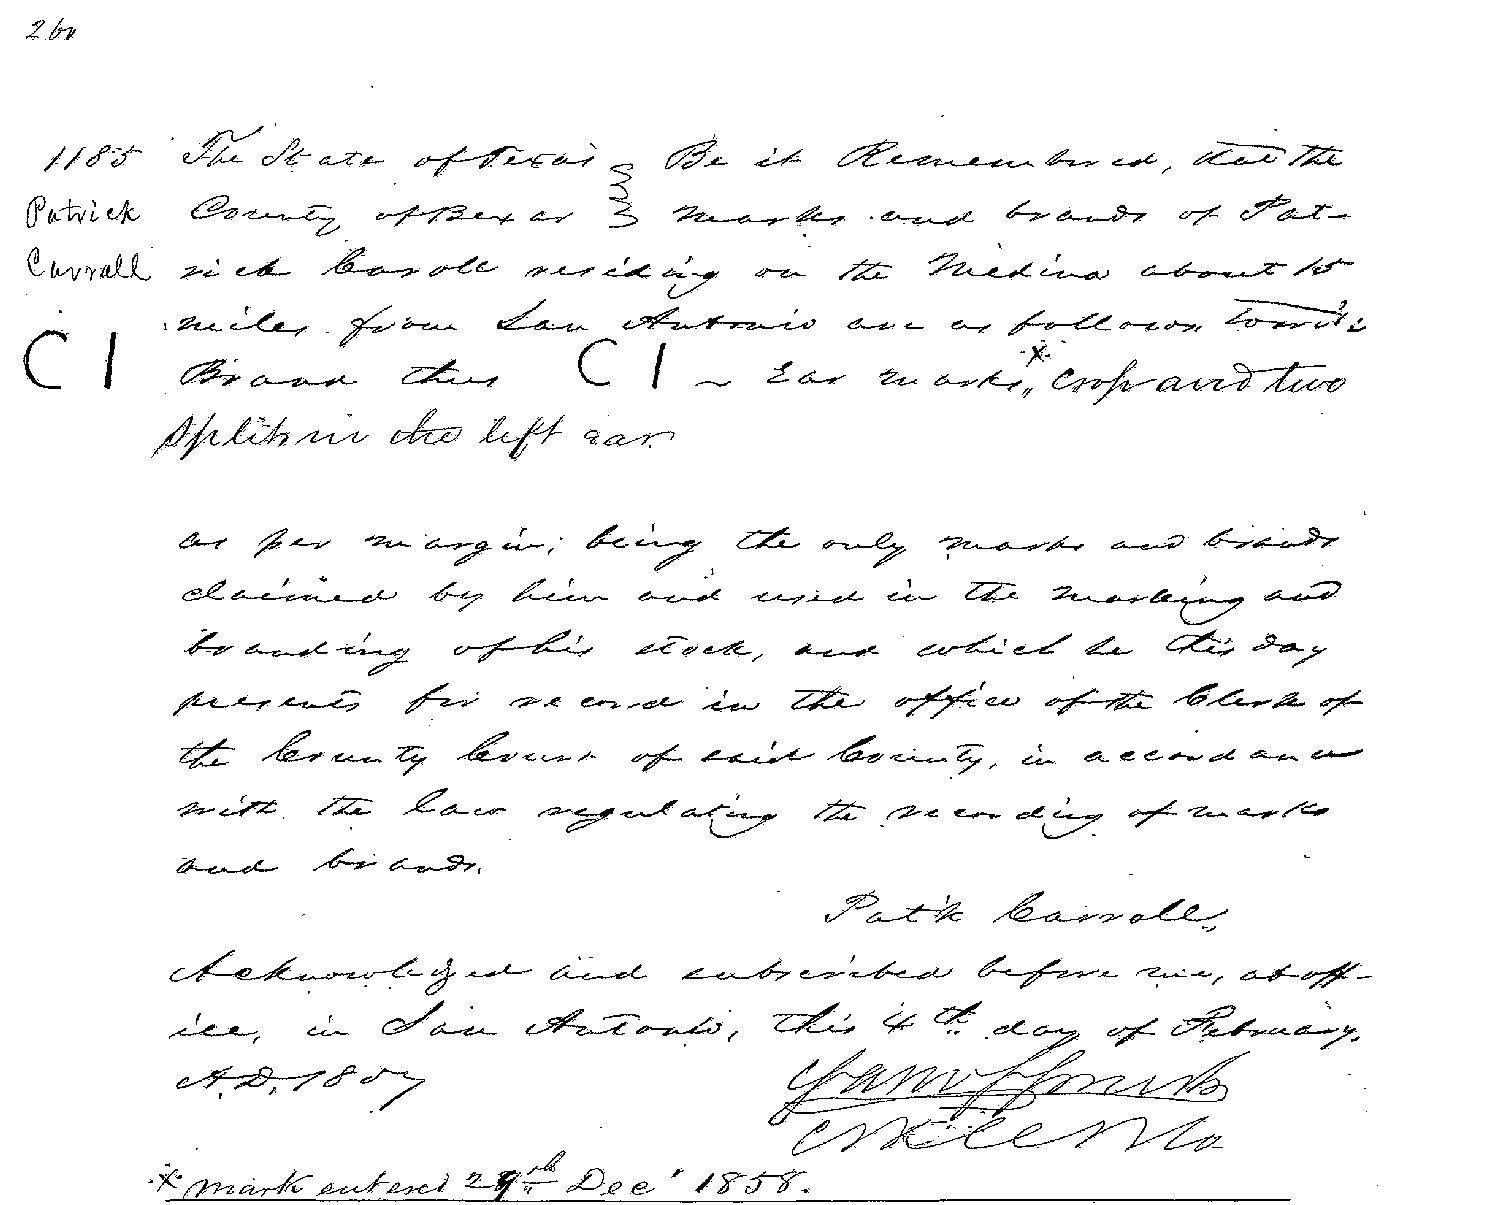 260
1185 The State of Texas Be it Remembered, that the
Patrick County of Bexar marks and brands of Pat-
Carrall rick Caroll residing on the Medina about 15
miles from San Antonio are as follows towit:
C I Brand thus C I ~ Ear marks, * Crop and two
Splits in the left ear.
as per margin; being the only marks and brands
claimed by him and used in the marking and
branding of his stock, and which he this day
presents for record in the office of the Clerk of
the County Court of said County, in accordance
with the law regulating the recording of marks
and brands.
Patk Carroll,
Acknowledged and subscribed before me, at off-
ice, in San Antonio, this 4th day of February,
A.D. 1857
* mark entered 29th Dec' 1858.